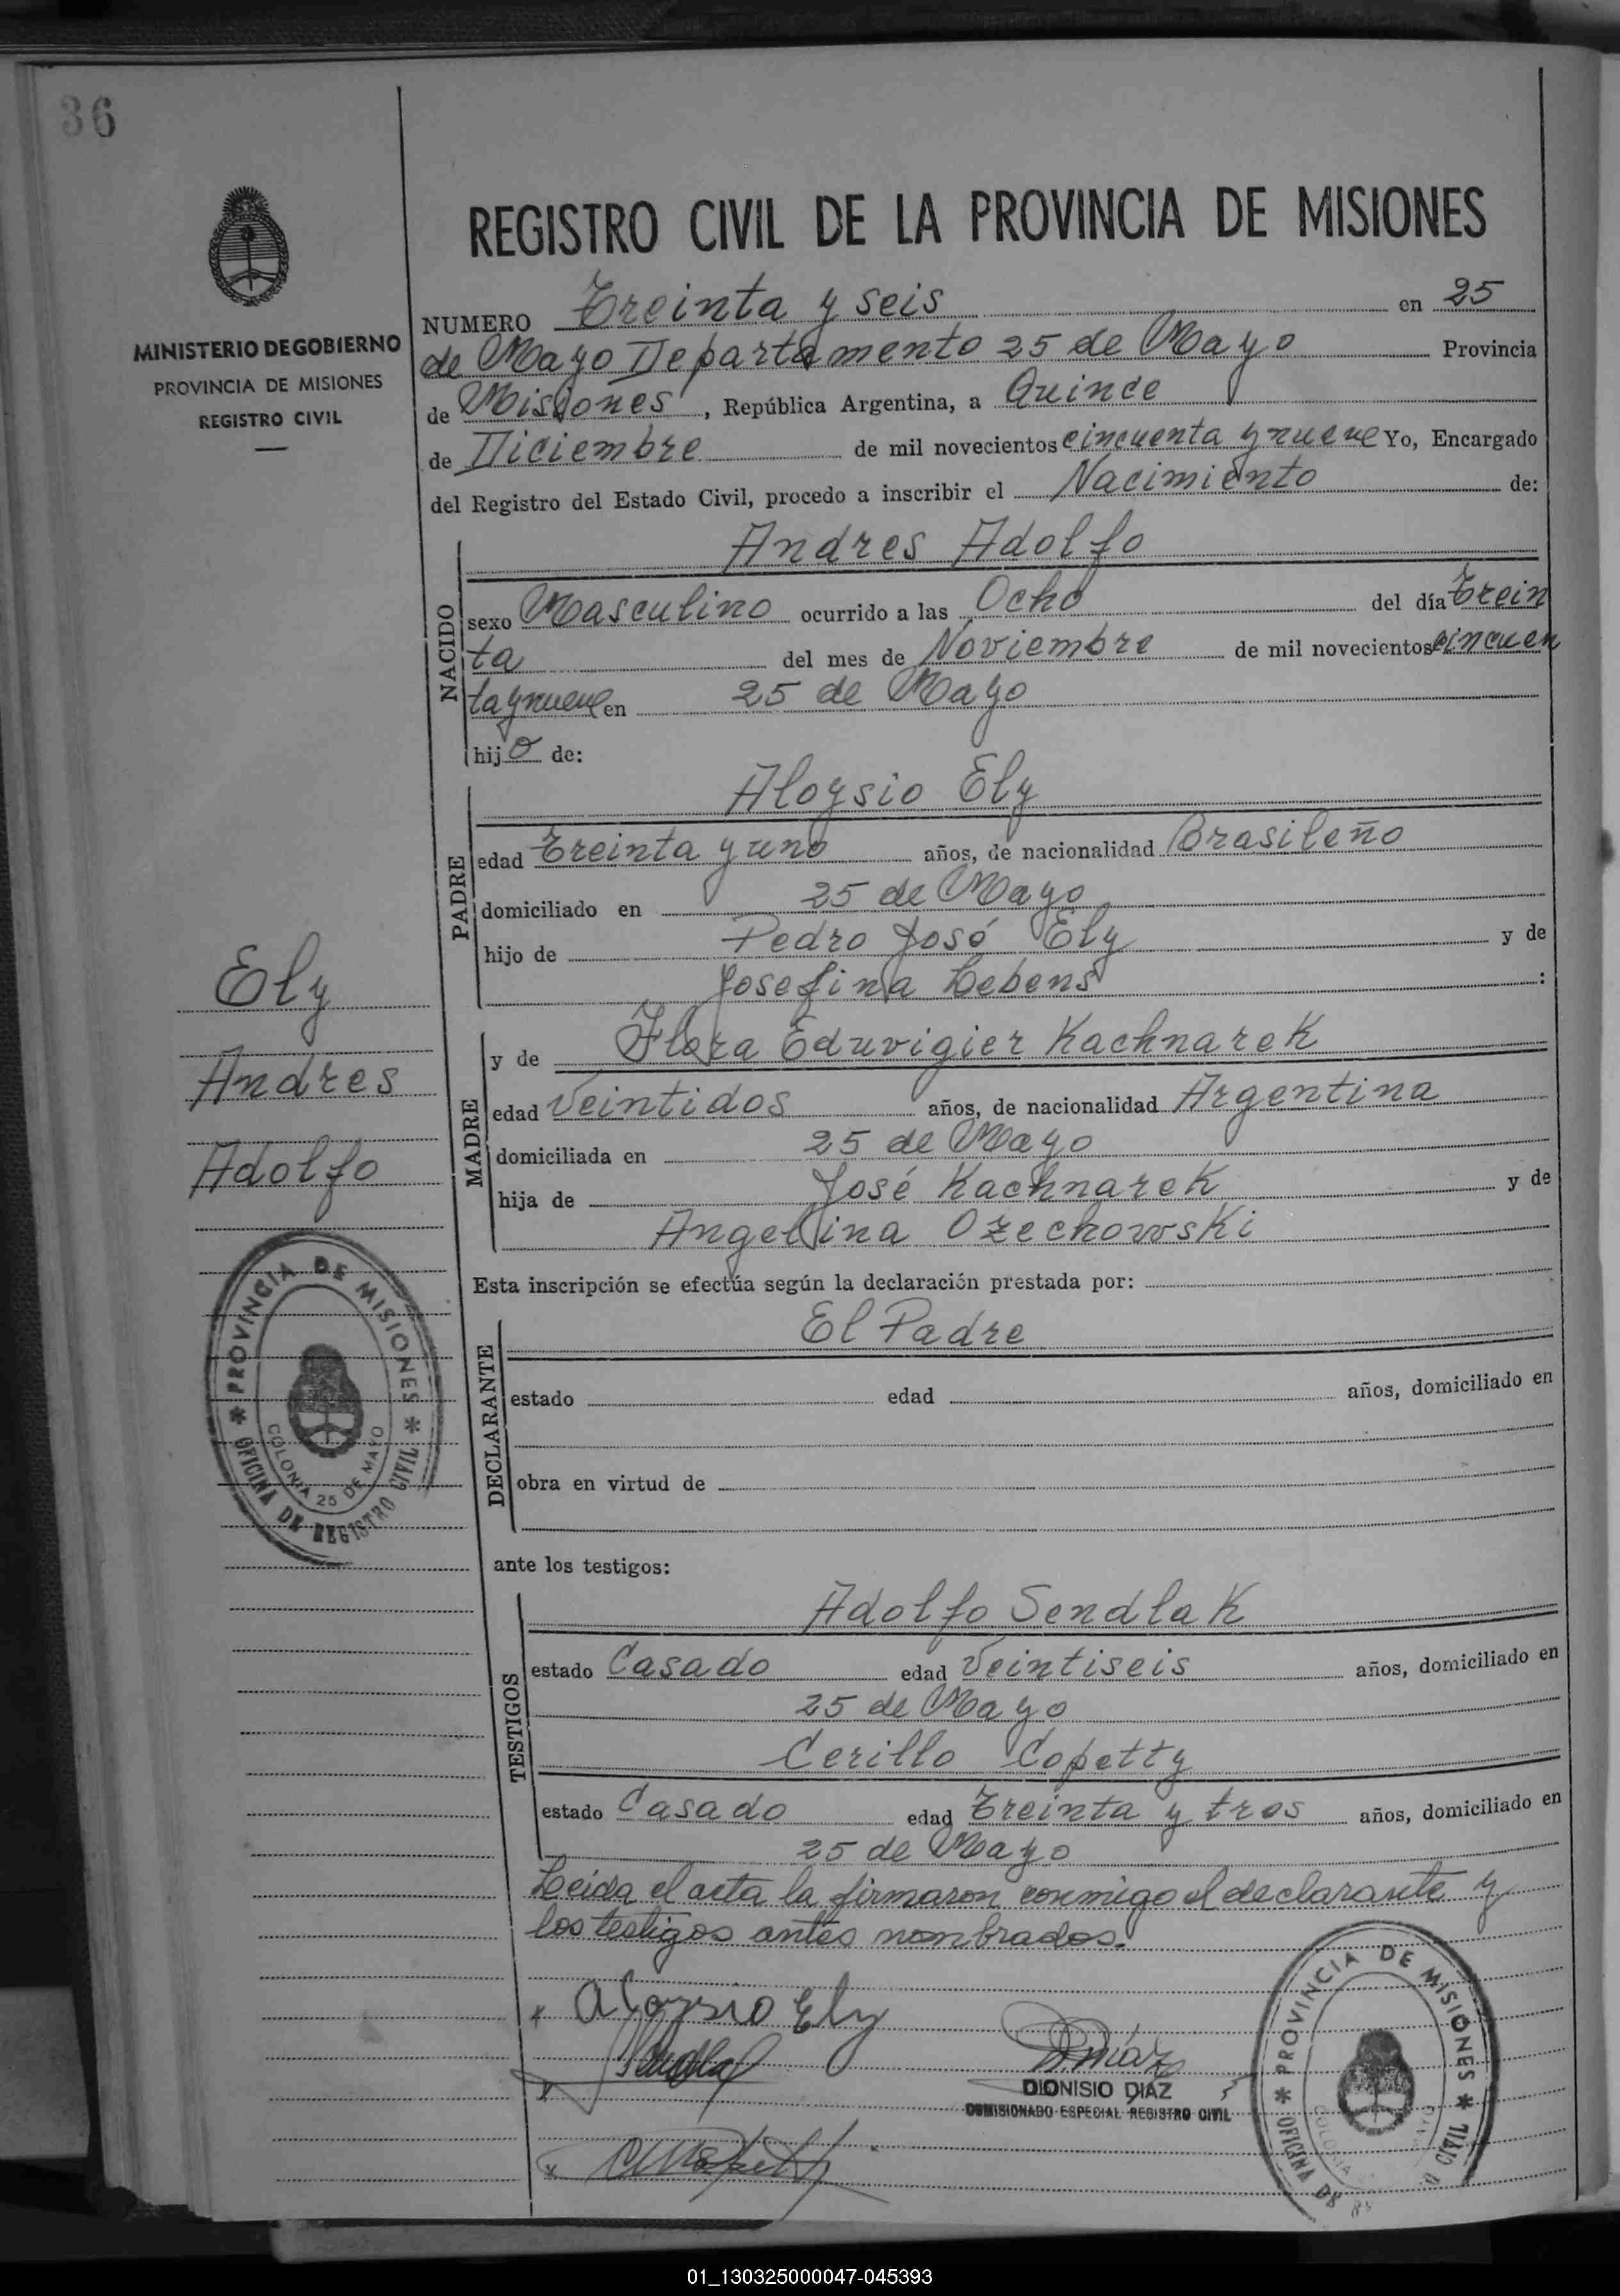 36
MINISTERIO DE GOBIERNO
PROVINCIA DE MISIONES
REGISTRO CIVIL
REGISTRO CIVIL DE LA PROVINCIA DE MISIONES
NUMERO Treinta y seis en 25
de Mayo Departamento 25 de Mayo Provincia
de Misiones, República Argentina, a Quince
de Diciembre de mil novecientos cincuenta y nueve Yo, Encargado
del Registro del Estado Civil, procedo a inscribir el Nacimiento de:
NACIDO
Andres Adolfo
sexo Masculino ocurrido a las Ocho del día Trein
ta del mes de Noviembre de mil novecientos cincuen
ta y nueve en 25 de Mayo
hijo de:
PADRE
Aloysio Ely
edad Treinta y uno años, de nacionalidad Brasileño
domiciliado en 25 de Mayo
hijo de Pedro José Ely y de
Josefina Lebens:
MADRE
y de Flora Eduvigier Kachnarek
edad Veintidos años, de nacionalidad Argentina
domiciliada en 25 de Mayo
hija de José Kachnarek y de
Angelina Ozechowski
Ely
Andres
Adolfo
PROVINCIA DE MISIONES
OFICINA DE REGISTRO CIVIL
COLONIA 25 DE MAYO
Esta inscripción se efectúa según la declaración prestada por:
DECLARANTE
El Padre
estado edad años, domiciliado en
obra en virtud de
ante los testigos:
TESTIGOS
Adolfo Sendlak
estado Casado edad Veintiseis años, domiciliado en
25 de Mayo
Cerillo Copetty
estado Casado edad Treinta y tres años, domiciliado en
25 de Mayo
Leida el acta la firmaron conmigo el declarante y
los testigos antes nombrados.
x Aloysio Ely
x
D. Diaz
DIONISIO DIAZ
COMISIONADO ESPECIAL REGISTRO CIVIL
x
PROVINCIA DE MISIONES
OFICINA DE CIVIL
01_130325000047-045393